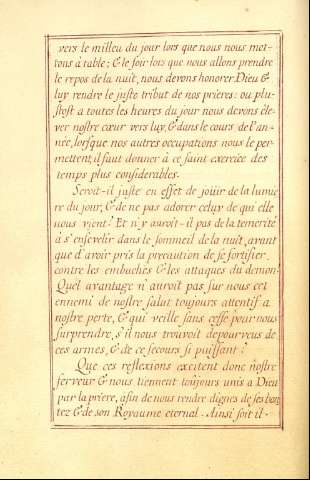 vers le milieu du jour lors que nous nous met-
tons à table; & le soir lors que nous allons prendre
le repos de la nuit, nous devons honorer Dieu &
luy rendre le juste tribut de nos prieres: ou plu-
stost a toutes les heures du jour nous devons éle-
ver nostre cœur vers luy, & dans le cours de l'an-
née, lorsque nos autres occupations nous le per-
mettent, il faut donner à ce saint exercice des
temps plus considerables.
Seroit-il juste en effet de joüir de la lumie
re du jour, & de ne pas adorer celuy de qui elle
nous vient? Et n'y auroit-il pas de la temerité
à s'ensevelir dans le sommeil de la nuit, avant
que d'avoir pris la precaution de se fortifier
contre les embuches & les attaques du demon.
Quel avantage n'auroit pas sur nous cet
ennemi de nostre salut toujours attentif a
nostre perte, & qui veille sans cesse pour nous
surprendre, s'il nous trouvoit dépourveus de
ces armes, & de ce secours si puissant?
Que ces reflexions excitent donc nostre
ferveur & nous tiennent toûjours unis a Dieu
par la priere, afin de nous rendre dignes de ses bon
tez & de son Royaume eternal. Ainsi soit il.